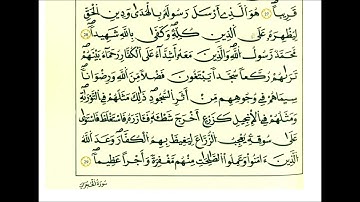 قَرِيبًا ٢٧ هُوَ الَّذِي أَرْسَلَ رَسُولَهُ بِالْهُدَىٰ وَدِينِ الْحَقِّ
لِيُظْهِرَهُ عَلَى الدِّينِ كُلِّهِ وَكَفَىٰ بِاللَّهِ شَهِيدًا ٢٨
مُحَمَّدٌ رَسُولُ اللَّهِ وَالَّذِينَ مَعَهُ أَشِدَّاءُ عَلَى الْكُفَّارِ رُحَمَاءُ بَيْنَهُمْ
تَرَاهُمْ رُكَّعًا سُجَّدًا يَبْتَغُونَ فَضْلًا مِنَ اللَّهِ وَرِضْوَانًا
سِيمَاهُمْ فِي وُجُوهِهِمْ مِنْ أَثَرِ السُّجُودِ ذَٰلِكَ مَثَلُهُمْ فِي التَّوْرَاةِ
وَمَثَلُهُمْ فِي الْإِنْجِيلِ كَزَرْعٍ أَخْرَجَ شَطْأَهُ فَآزَرَهُ فَاسْتَغْلَظَ فَاسْتَوَىٰ
عَلَىٰ سُوقِهِ يُعْجِبُ الزُّرَّاعَ لِيَغِيظَ بِهِمُ الْكُفَّارَ وَعَدَ اللَّهُ
الَّذِينَ آمَنُوا وَعَمِلُوا الصَّالِحَاتِ مِنْهُمْ مَغْفِرَةً وَأَجْرًا عَظِيمًا ٢٩